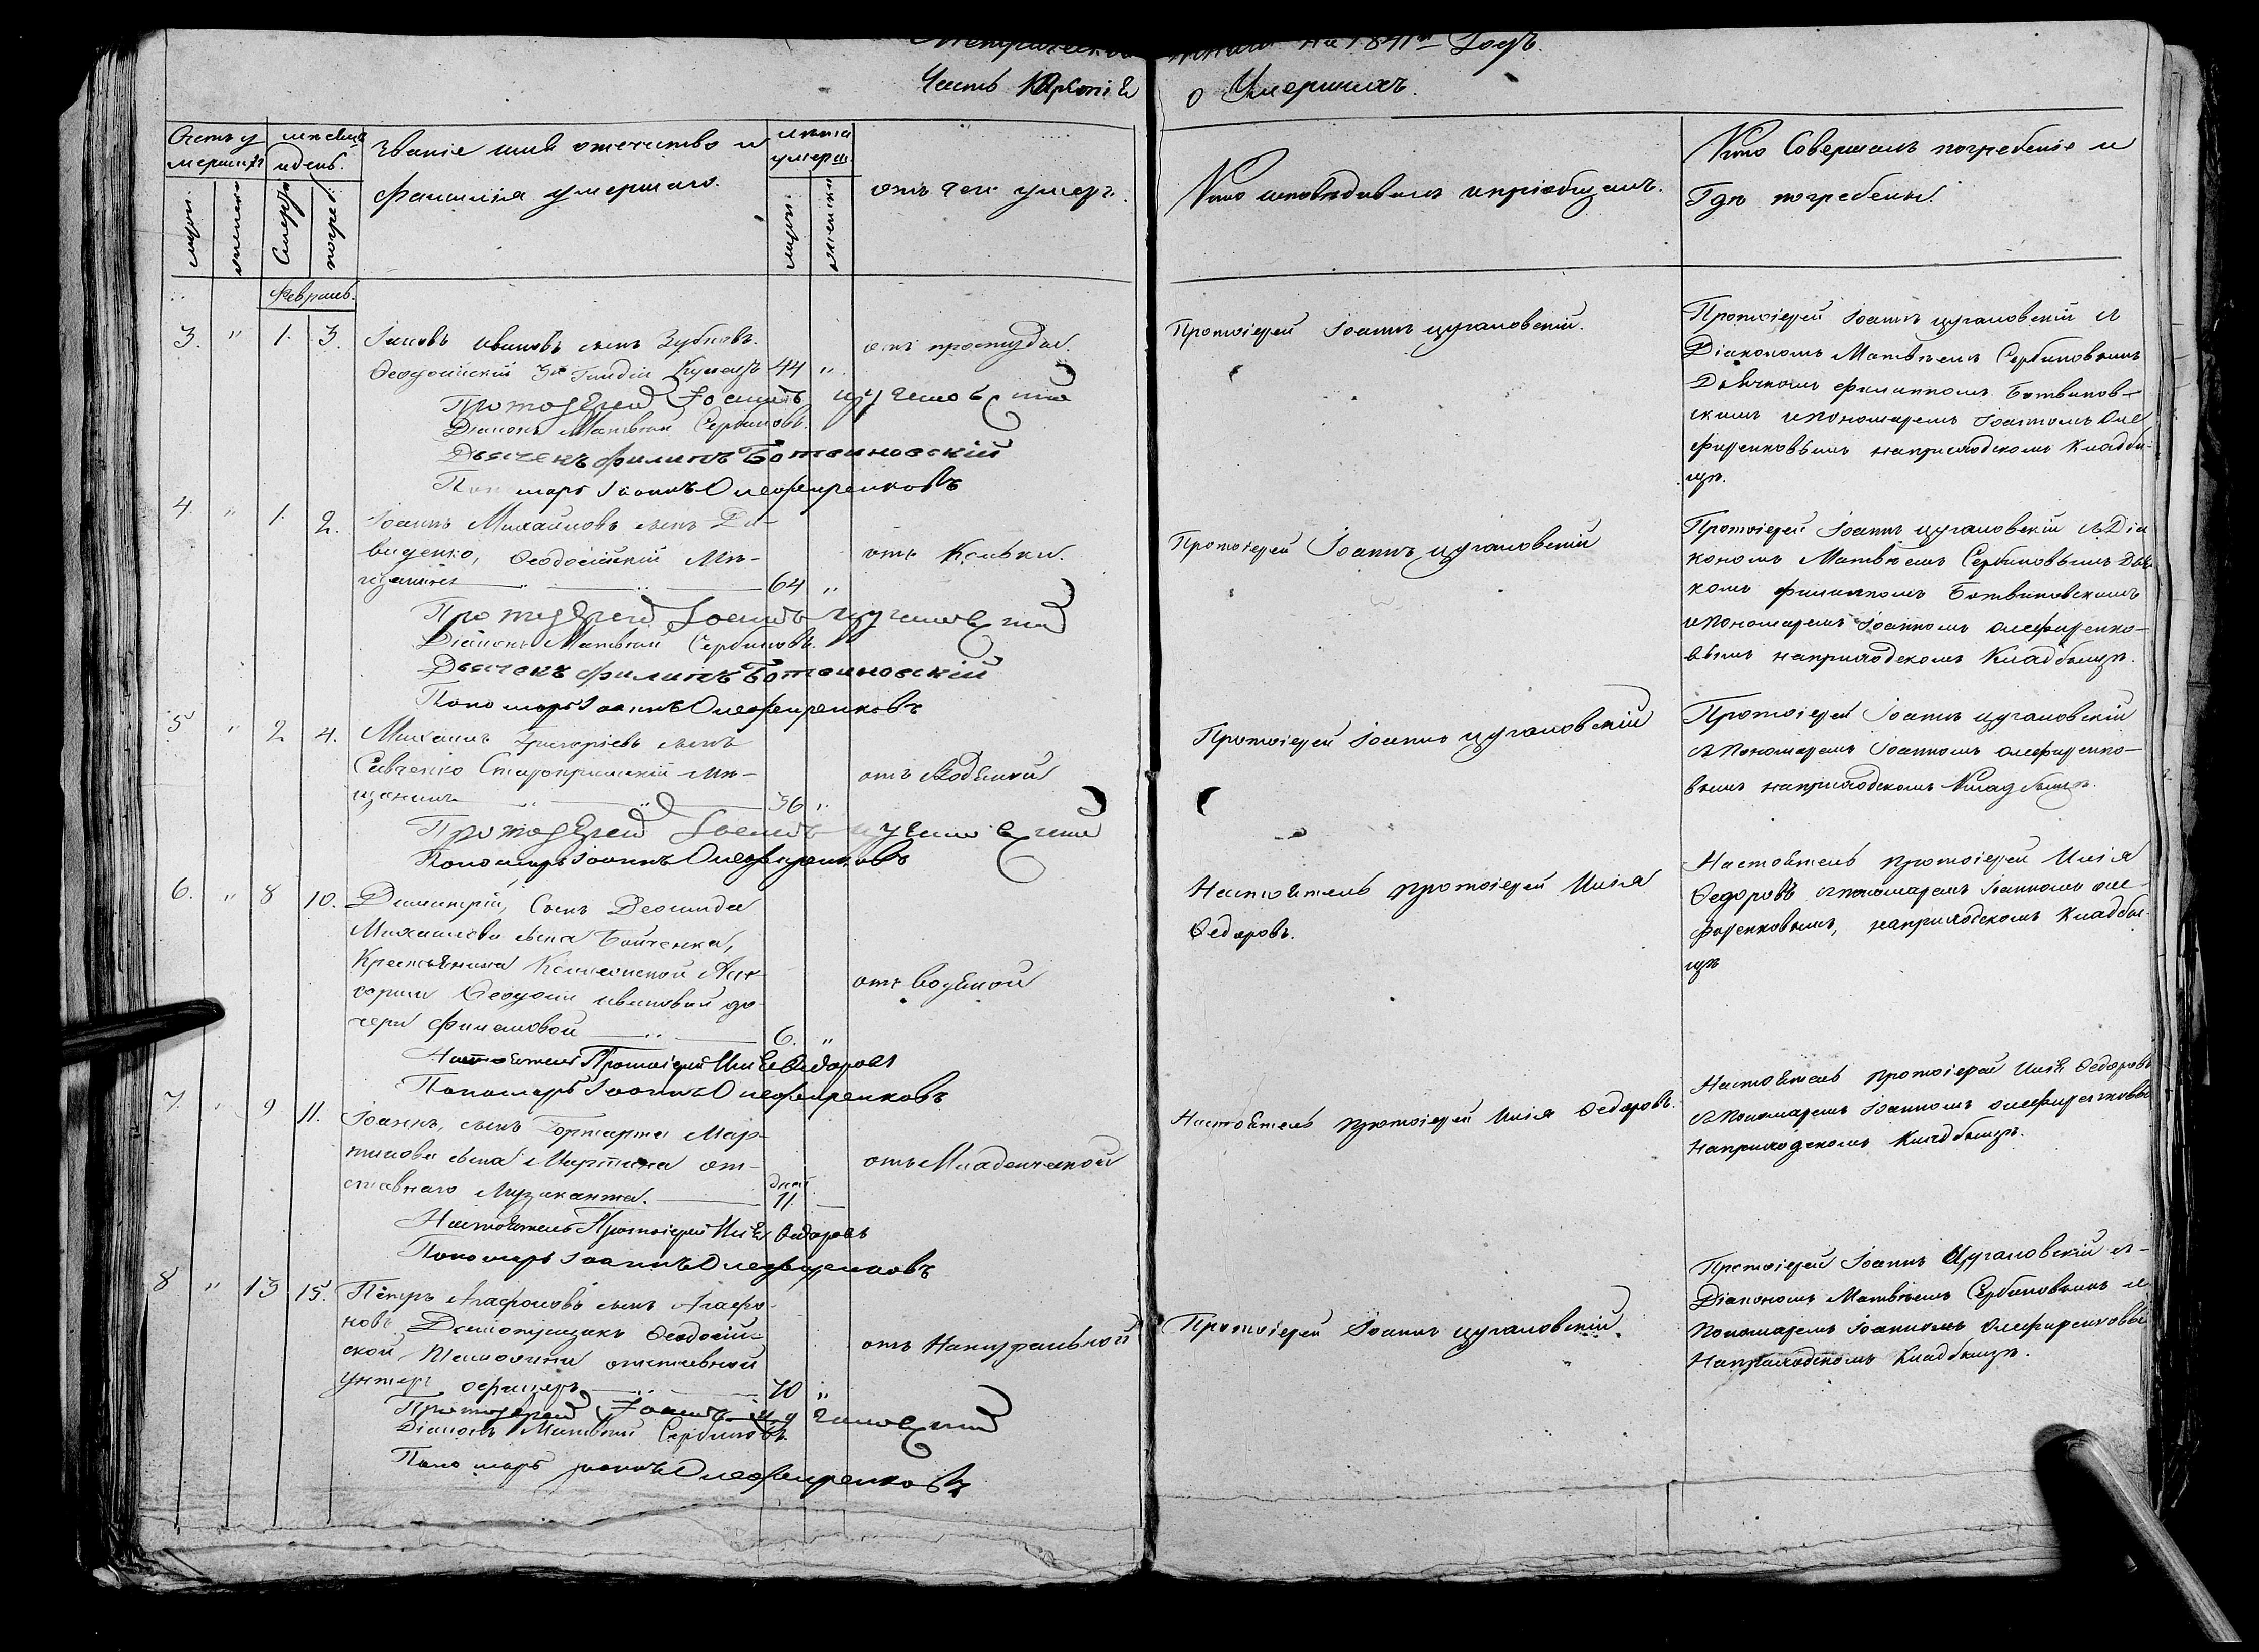 на 1841й Годъ.
Часть Третія о Умершихъ.
Счетъ умершихъ
мѣсяцъ и день.
Званіе имя отечество и
фамилія умершаго.
лѣта
умерш.
отъ чего умеръ.
Кто исповѣдывалъ и пріобщалъ.
Кто Совершалъ погребеніе и
Гдѣ погребены.
мужс.
женск.
Смерти
погреб.
мужс.
женска
февраль.
3. " 1. 3. Іаковъ Ивановъ сынъ Зубковъ. отъ простуды.
Феодосійскій 3й Гильдіи Купецъ 44 "
Протоіерей Іоаннъ цугановскій
Діаконъ Матвѣй Сербиновъ.
Дьячекъ Филипъ Ботвиновскій
Пономарь Іоаннъ Олефиренковъ
Протоіерей Іоаннъ цугановскій.
Протоіерей Іоаннъ цугановскій съ
Діакономъ Матвѣемъ Сербиновымъ
Дьячкомъ филиппомъ Ботвинов-
скимъ и пономаремъ Іоанномъ Оле
фиренковымъ на приходскомъ Кладби-
щѣ.
4. " 1. 2. Іоаннъ Михайловъ сынъ Да-
виденко, Феодосійскій Мѣ- отъ Кольки.
щанинъ 64 "
Протоіерей Іоаннъ цугановскій
Діаконъ Матвѣй Сербиновъ.
Дьячекъ Филипъ Ботвиновскій
Пономарь Іоаннъ Олефиренковъ
Протоіерей Іоаннъ цугановскій
Протоіерей Іоаннъ цугановскій съ Діа
кономъ Матвѣемъ Сербиновымъ Дьяч
комъ филиппомъ Ботвиновскимъ
и пономаремъ Іоанномъ олефиренко-
вымъ на приходскомъ Кладбищѣ.
5 " 2 4. Михаилъ Григоріевъ сынъ
Савченко Старокрымскій мѣ- отъ водяной
щанинъ 36 "
Протоіерей Іоаннъ цугановскій
Пономарь Іоаннъ Олефиренковъ
Протоіерей Іоаннъ цугановскій
Протоіерей Іоаннъ цугановскій
съ Пономаремъ Іоанномъ олефиренко-
вымъ на приходскомъ Кладбищѣ.
6. " 8 10. Димитрій, Сынъ
Михайлова сына Бойченка,
Крестьянина
Ивановой до- отъ водяной
чери Филиповой 6. "
Настоятель Протоіерей Илія Федоровъ
Пономарь Іоаннъ Олефиренковъ
Настоятель протоіерей Илія
Федоровъ.
Настоятель протоіерей Илія
Федоровъ съ пономаремъ Іоанномъ оле-
фиренковымъ, на приходскомъ Кладби-
щѣ
7. " 9 11. Іоаннъ, сынъ Мар-
тинова сына Мартина от- отъ Младенческой
ставнаго Музыканта. дней 11.
Настоятель Протоіерей Илія Федоровъ
Пономарь Іоаннъ Олефиренковъ
Настоятель протоіерей Илія Федоровъ.
Настоятель протоіерей Илія Федоровъ
съ Пономаремъ Іоанномъ олефиренковы
на приходскомъ Кладбищѣ.
8 " 13 15. Петръ Агафоновъ сынъ Агафо-
новъ Феодосій-
ской отставной отъ Натуральной
унтеръ офицеръ 70 "
Протоіерей Іоаннъ цугановскій
Діаконъ Матвѣй Сербиновъ.
Пономарь Іоаннъ Олефиренковъ
Протоіерей Іоаннъ цугановскій.
Протоіерей Іоаннъ Цугановскій съ
Діакономъ Матвѣемъ Сербиновымъ и
Пономаремъ Іоанномъ Олефиренковы
На приходскомъ Кладбищѣ.